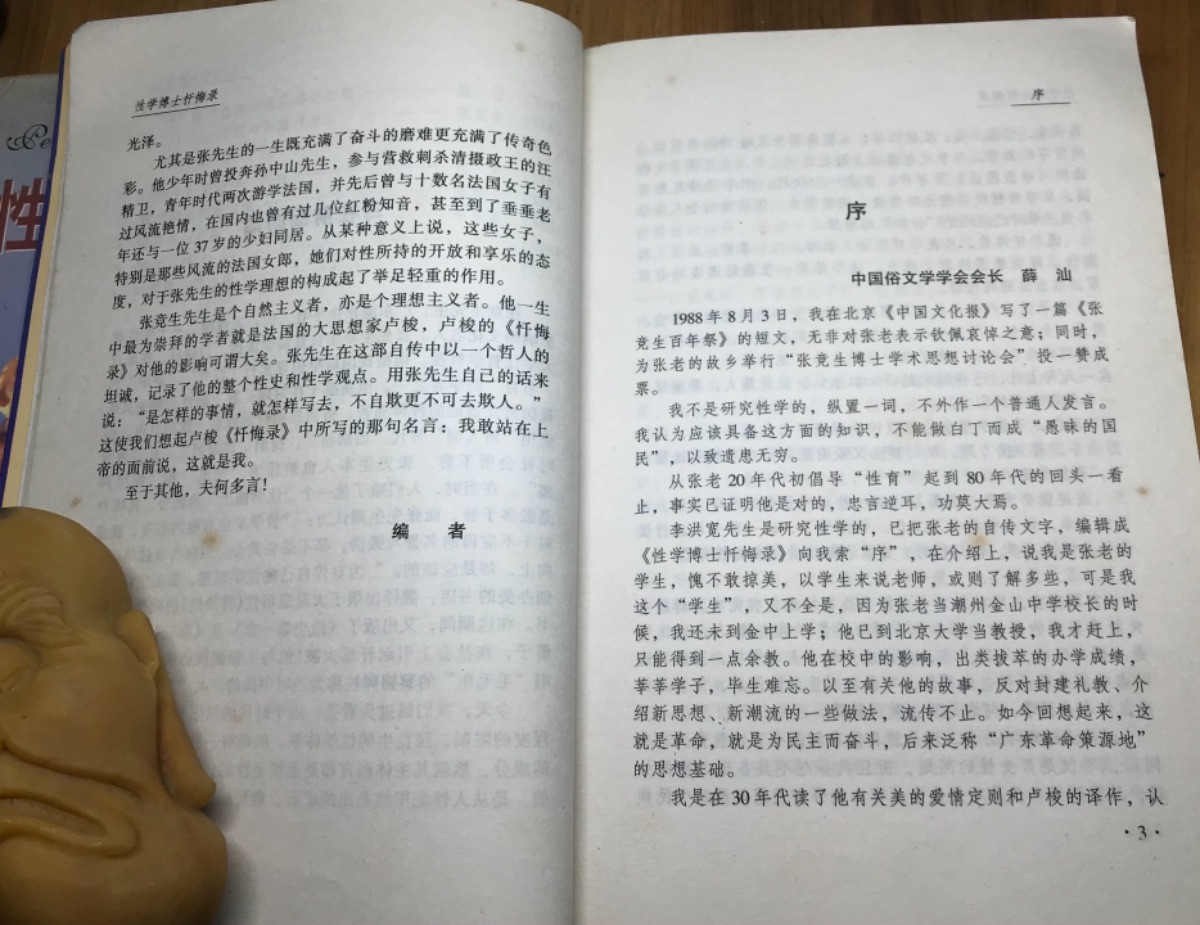 性学博士忏悔录
光泽。
尤其是张先生的一生既充满了奋斗的磨难更充满了传奇色
彩。他少年时曾投奔孙中山先生，参与营救刺杀清摄政王的汪
精卫，青年时代两次游学法国，并先后曾与十数名法国女子有
过风流艳情，在国内也曾有过几位红粉知音，甚至到了垂垂老
年还与一位37岁的少妇同居。从某种意义上说，这些女子，
特别是那些风流的法国女郎，她们对性所持的开放和享乐的态
度，对于张先生的性学理想的构成起了举足轻重的作用。
张竞生先生是个自然主义者，亦是个理想主义者。他一生
中最为崇拜的学者就是法国的大思想家卢梭，卢梭的《忏悔
录》对他的影响可谓大矣。张先生在这部自传中以一个哲人的
坦诚，记录了他的整个性史和性学观点。用张先生自己的话来
说：“是怎样的事情，就怎样写去，不自欺更不可去欺人。”
这使我们想起卢梭《忏悔录》中所写的那句名言：我敢站在上
帝的面前说，这就是我。
至于其他，夫何多言！
编 者
性
序
序
中国俗文学学会会长 薛 汕
1988年8月3日，我在北京《中国文化报》写了一篇《张
竞生百年祭》的短文，无非对张老表示钦佩哀悼之意；同时，
为张老的故乡举行“张竞生博士学术思想讨论会”投一赞成
票。
我不是研究性学的，纵置一词，不外作一个普通人发言。
我认为应该具备这方面的知识，不能做白丁而成“愚昧的国
民”，以致遗患无穷。
从张老20年代初倡导“性育”起到80年代的回头一看
止，事实已证明他是对的，忠言逆耳，功莫大焉。
李洪宽先生是研究性学的，已把张老的自传文字，编辑成
《性学博士忏悔录》向我索“序”，在介绍上，说我是张老的
学生，愧不敢掠美，以学生来说老师，或则了解多些，可是我
这个“学生”，又不全是，因为张老当潮州金山中学校长的时
候，我还未到金中上学；他已到北京大学当教授，我才赶上，
只能得到一点余教。他在校中的影响，出类拔萃的办学成绩，
莘莘学子，毕生难忘。以至有关他的故事，反对封建礼教、介
绍新思想、新潮流的一些做法，流传不止。如今回想起来，这
就是革命，就是为民主而奋斗，后来泛称“广东革命策源地”
的思想基础。
我是在30年代读了他有关美的爱情定则和卢梭的译作，认
·3·